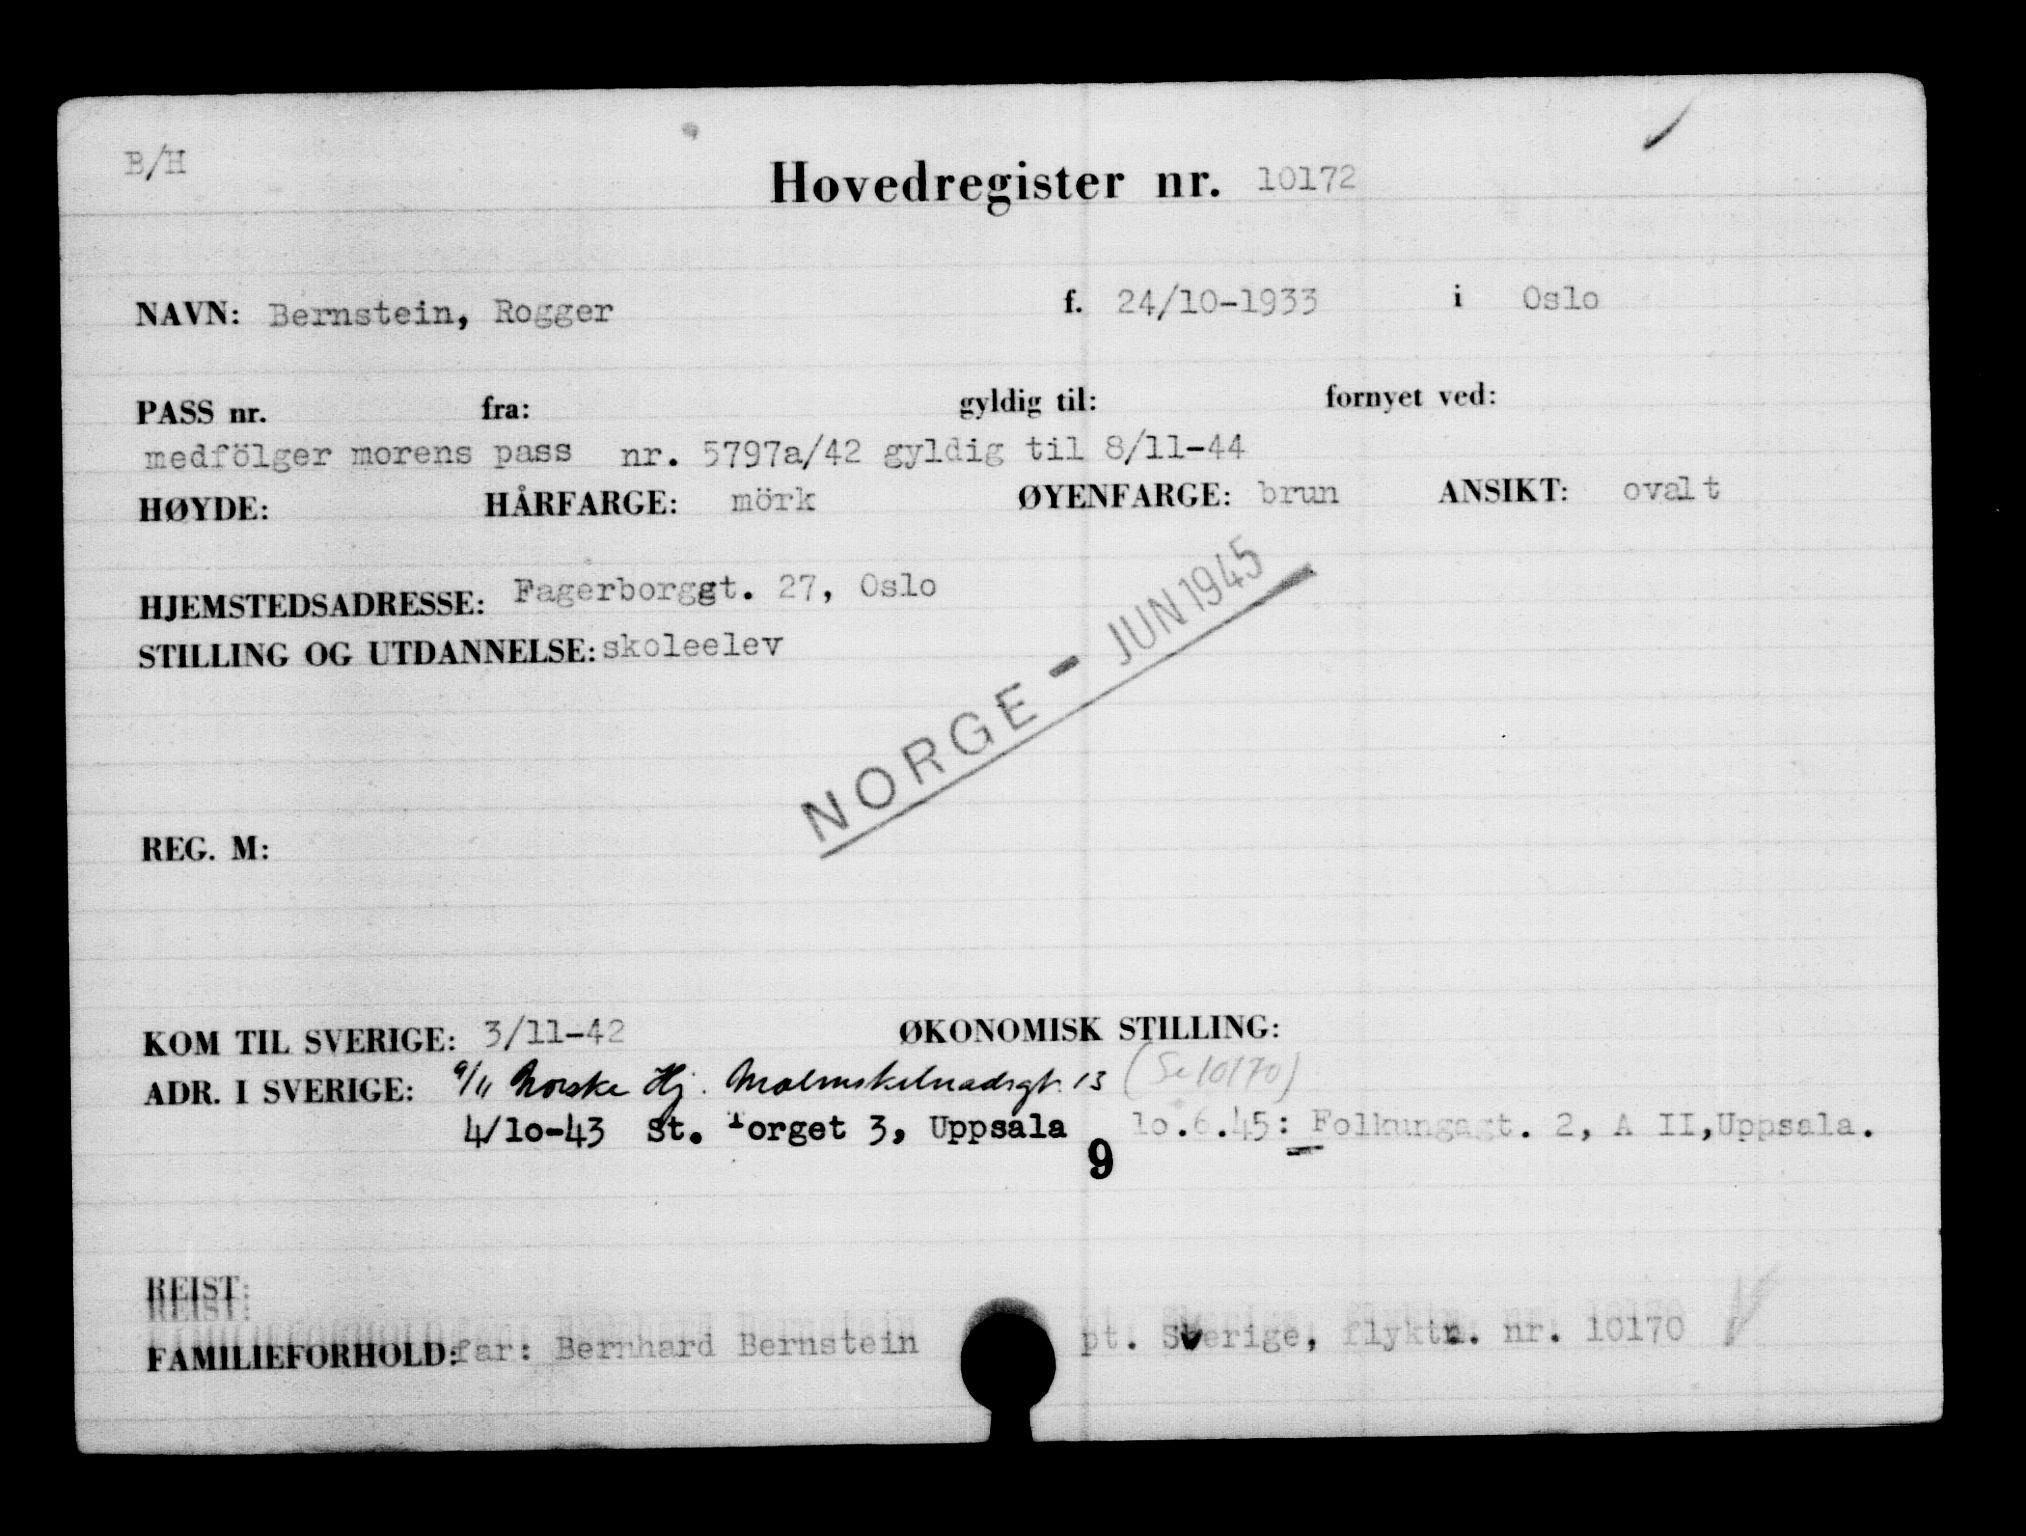 B/H
Hovedregister nr. 10172
NAVN: Bernstein, Rogger f. 24/10-1933 i Oslo
PASS nr. fra: gyldig til: fornyet ved:
medfölger morens pass nr. 5797a/42 gyldig til 8/11-44
HØYDE: HÅRFARGE: mörk ØYENFARGE: brun ANSIKT: ovalt
HJEMSTEDSADRESSE: Fagerborggt. 27, Oslo
STILLING OG UTDANNELSE: skoleelev
NORGE - JUN 1945
REG. M:
KOM TIL SVERIGE: 3/11-42 ØKONOMISK STILLING:
ADR. I SVERIGE: 9/11 Norske Hj. Malmskilnadsgt. 13 (Se 10170)
4/10-43 St. Torget 3, Uppsala 10.6.45: Folkungagt. 2, A II, Uppsala.
9
REIST:
FAMILIEFORHOLD: far: Bernhard Bernstein pt. Sverige, flyktn. nr. 10170